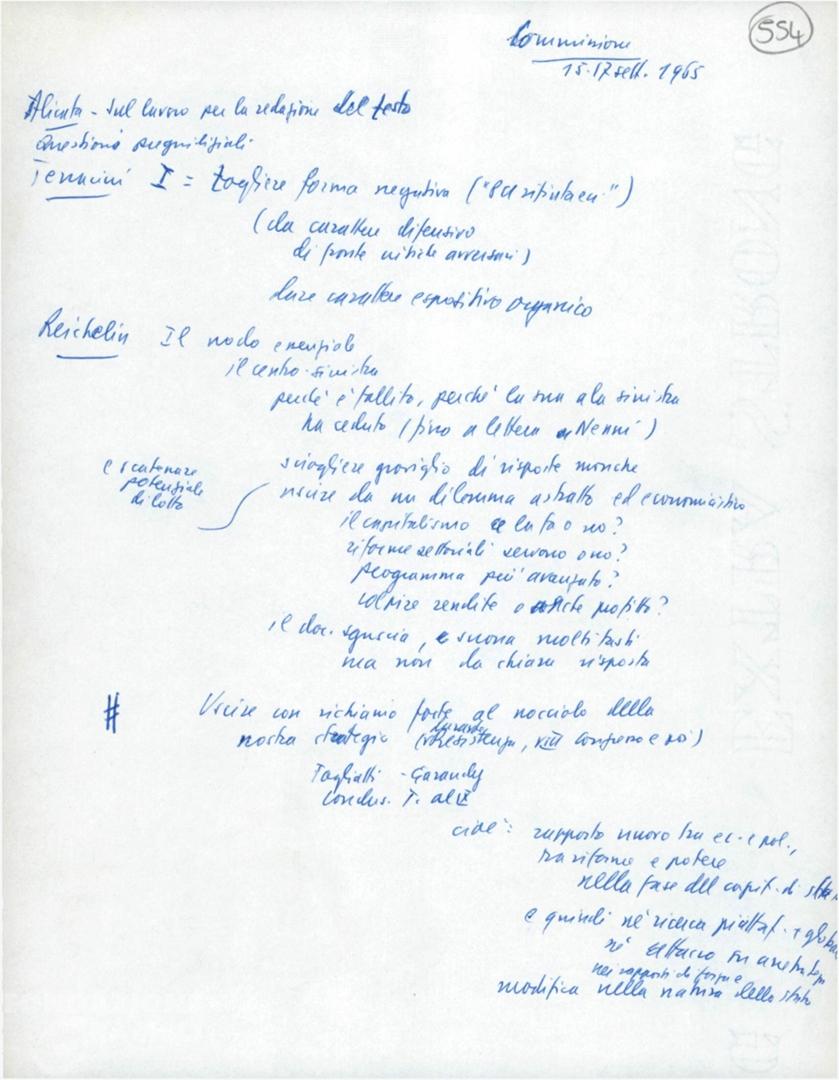 554
Commissione
15-17 sett. 1965
Alicata - Sul lavoro per la redazione del testo
Questioni pregiudiziali
Terracini I = togliere forma negativa ("
(da carattere difensivo
di fronte critiche avversari)
dare carattere espositivo organico
Reichlin Il nodo essenziale
il centro-sinistra
perché è fallito, perché la sua ala sinistra
ha ceduto (fino a lettera a Nenni)
e scatenare
potenziale
di lotta
sciogliere groviglio di risposte monche
uscire da un dilemma astratto ed economicistico
il capitalismo ce la fa o no?
riforme settoriali servono o no?
programma più avanzato?
colpire rendite o anche profitto?
il doc. sguscia, e suona molti tasti
ma non da chiara risposta
# Uscire con richiamo forte al nocciolo della
nostra strategia (Resistenza, VIII congresso e poi)
Togliatti - Garaudy
conclus. T. al X
cioè: rapporto nuovo tra ec. e pol.,
tra riforme e potere
nella fase del capit. di
e quindi né ricerca piattaf. + 
né attacco
nei rapporti di forza e
modifica nella natura dello stato